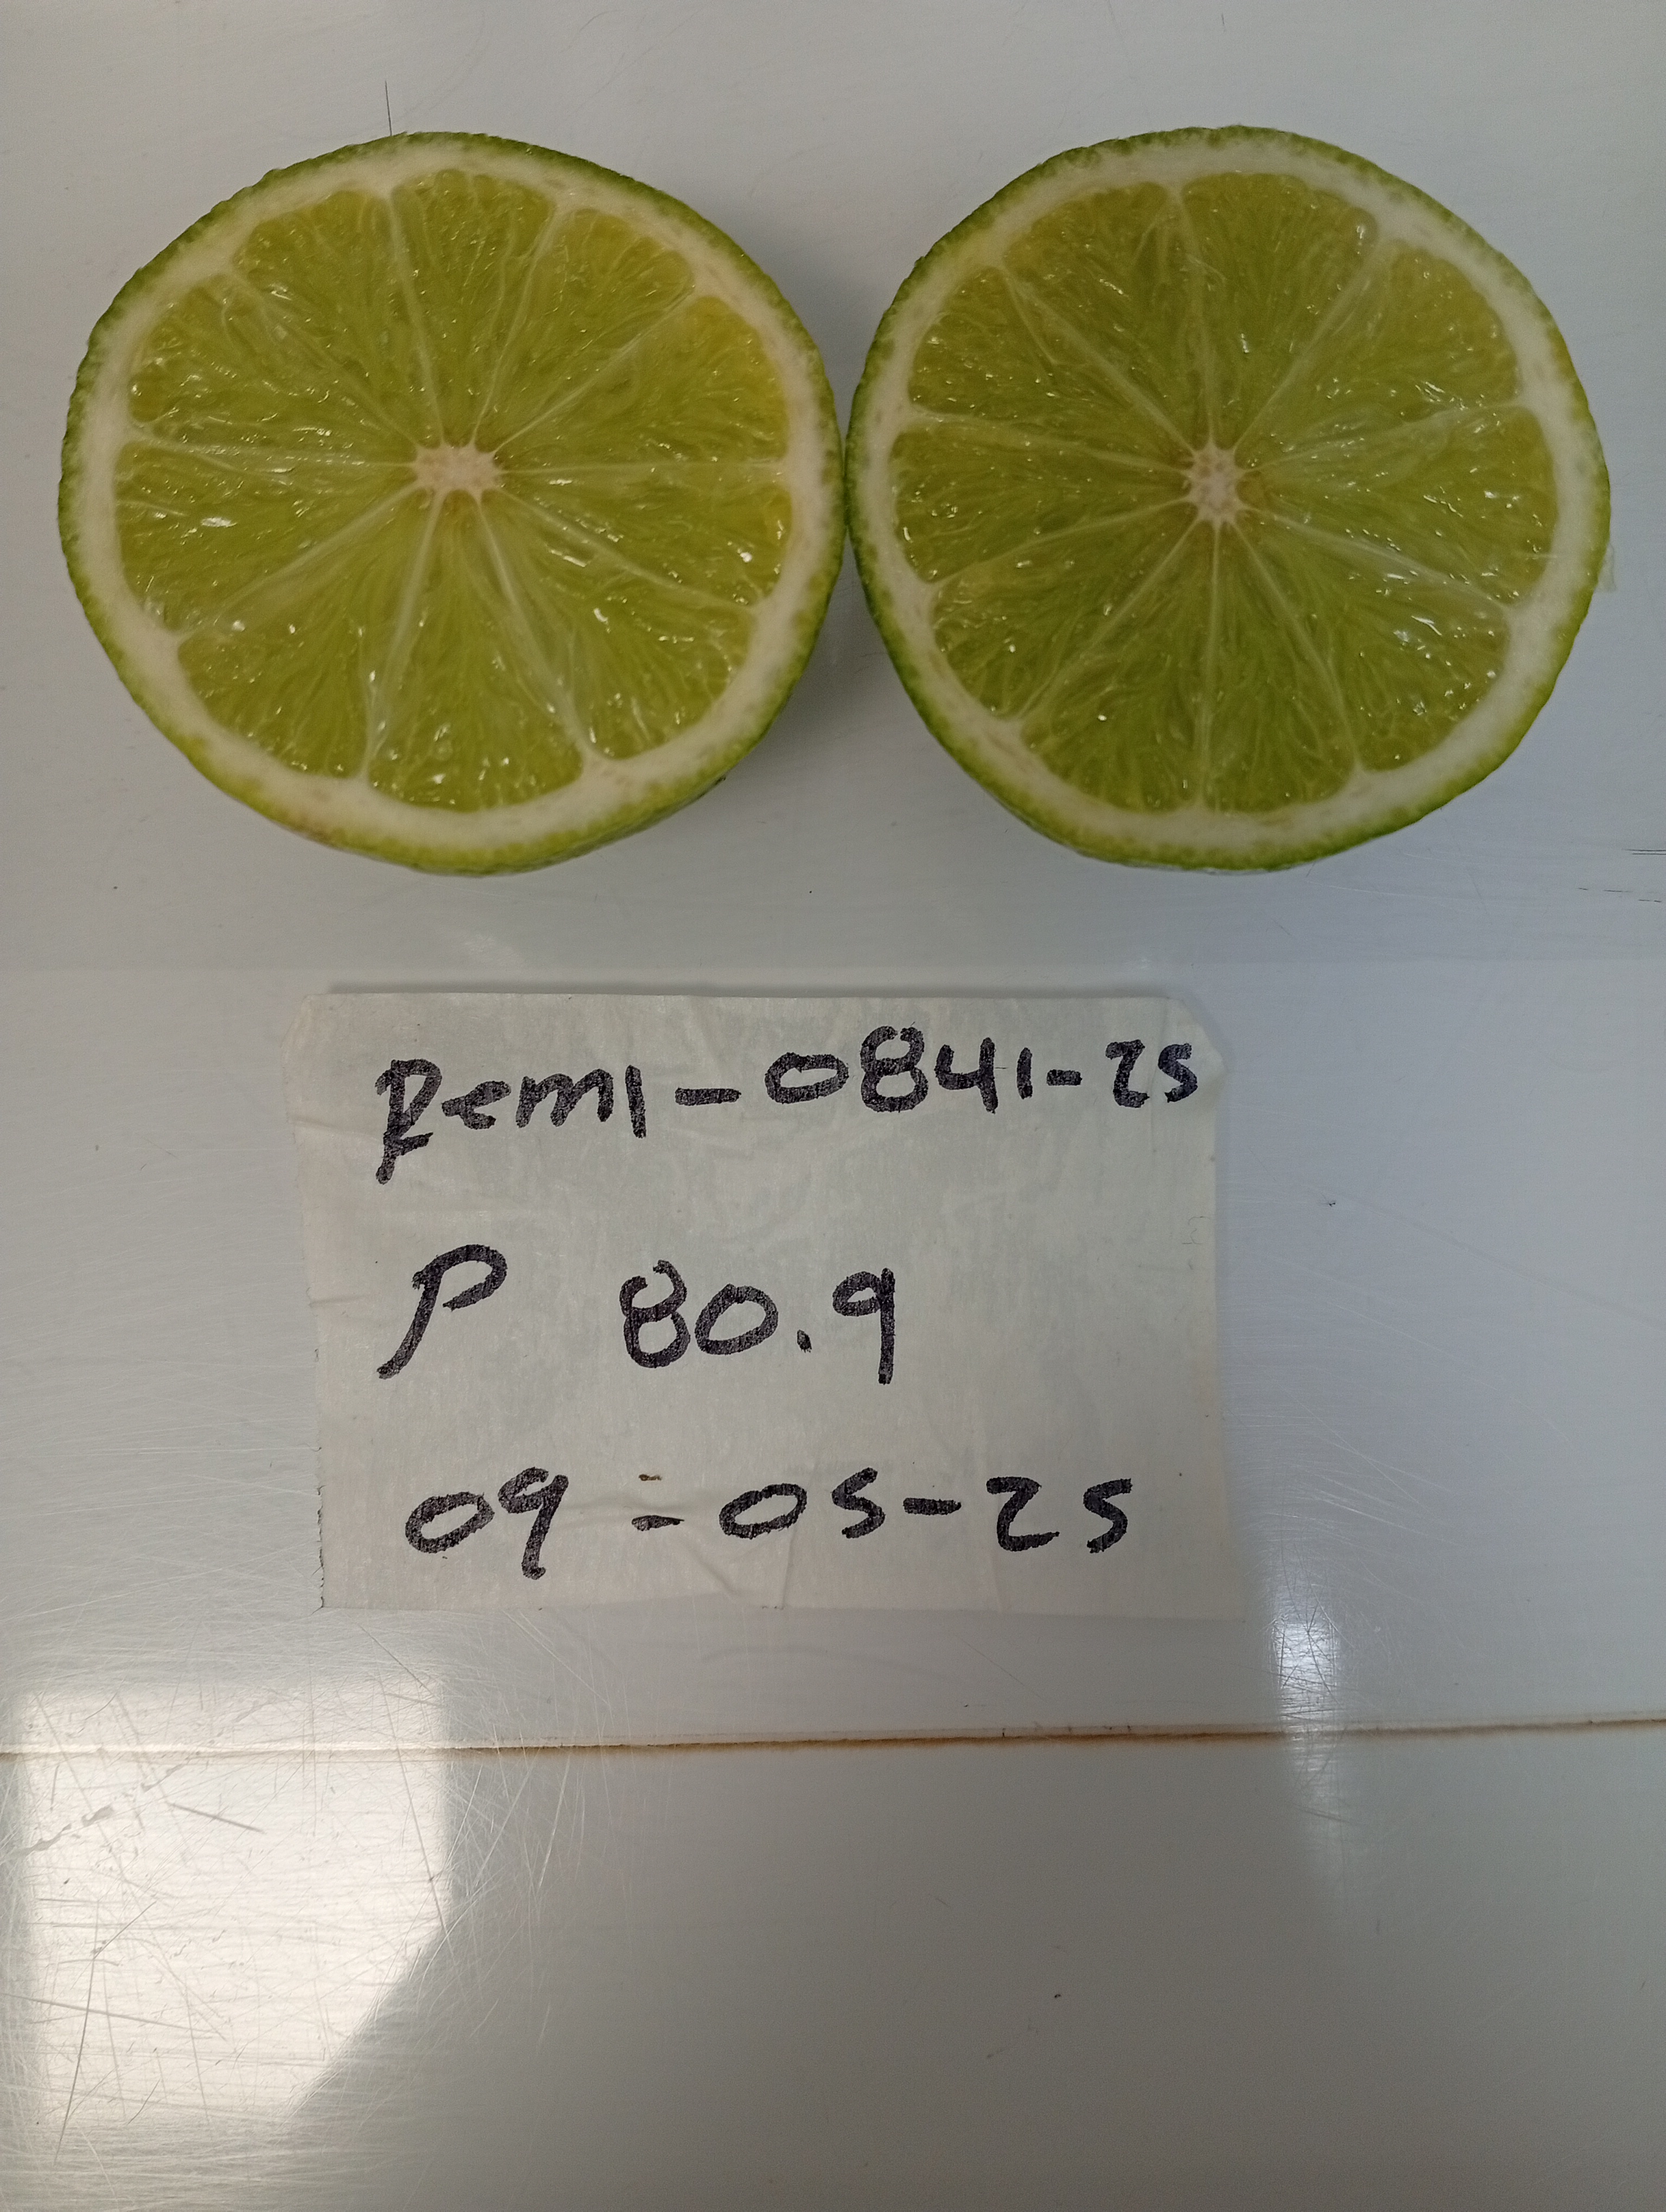 Remi-0841-25
P 80.9
09-05-25